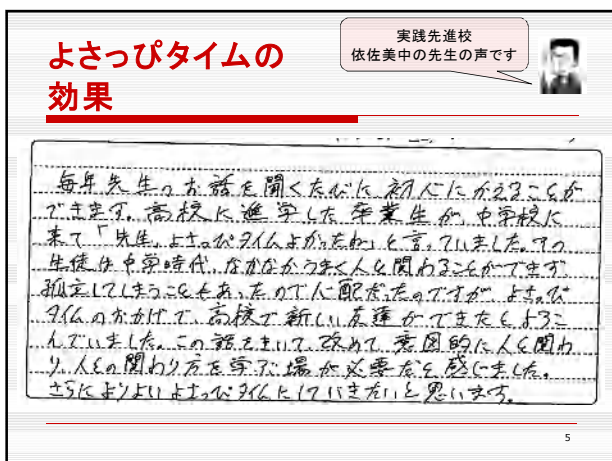 よさっぴタイムの
効果
実践先進校
依佐美中の先生の声です
毎年先生のお話を聞くたびに初心にかえることが
できます。高校に進学した卒業生が、中学校に
来て「先生、よさっぴタイムよかったわ」と言っていました。その
生徒は中学時代、なかなかうまく人と関わることができず
孤立してしまうこともあったので心配だったのですが、よさっぴ
タイムのおかげで、高校で新しい友達ができたとよろこ
んでいました。この話をきいて、改めて、意図的に人と関わ
り、人との関わり方を学ぶ場が必要だと感じました。
さらによりよいよさっぴタイムにしていきたいと思います。
5